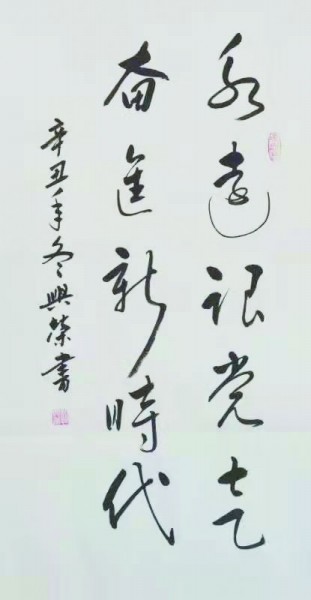 永遠跟党走
奋進新時代
辛丑年冬興榮書